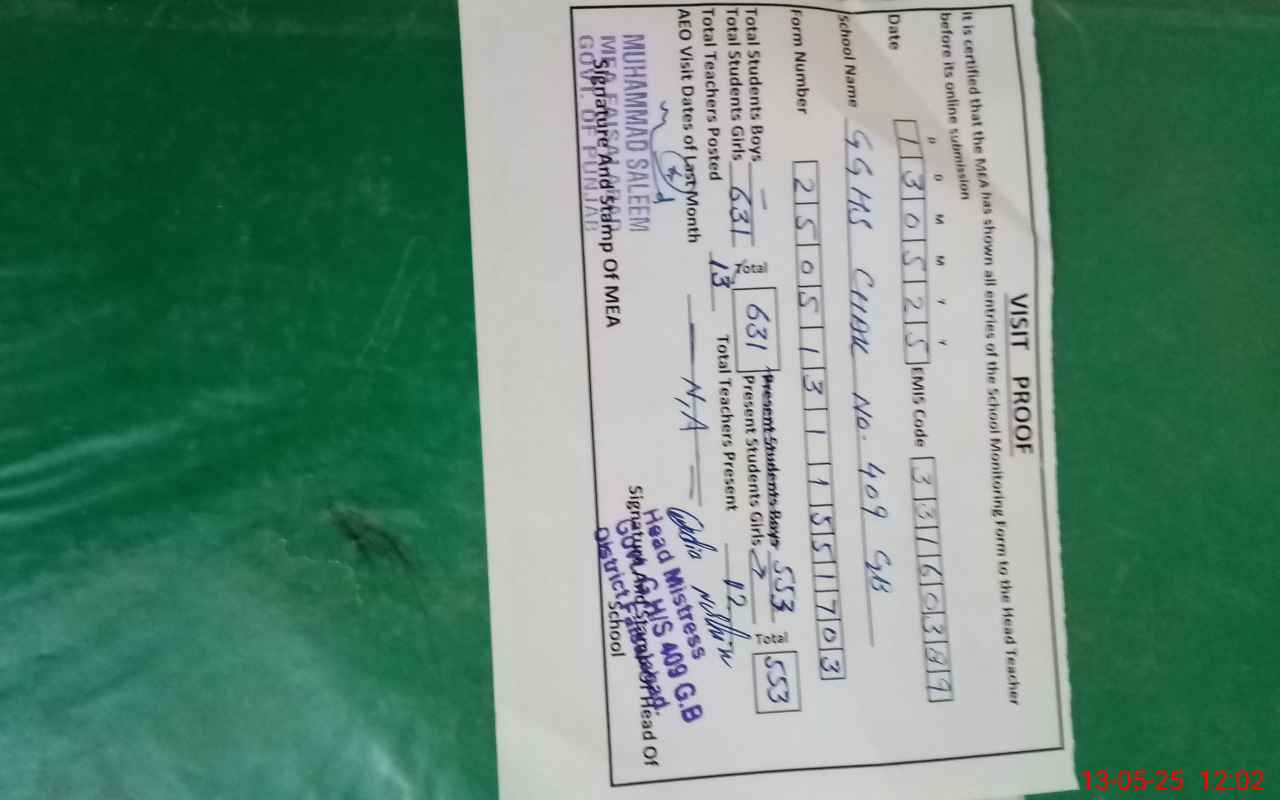 VISIT PROOF
It is certified that the MEA has shown all entries of the School Monitoring Form to the Head Teacher
before its online submission
D D M M Y Y
Date 130525 EMIS Code
School Name GGHS CHAK No. 409 GB
Form Number 25051311551703
Total Students Boys — Present Students Boys
Total Students Girls 631 Total 631 Present Students Girls 553 Total 553
Total Teachers Posted 13 Total Teachers Present 12
AEO Visit Dates of Last Month — N,A —
MUHAMMAD SALEEM
MEA FAISALABAD
GOVT. OF PUNJAB
Signature And Stamp Of MEA
Head Mistress
Govt. G.H/S 409 G.B
District Faisalabad.
Signature And Stamp Of Head Of
School
13-05-25 12:02